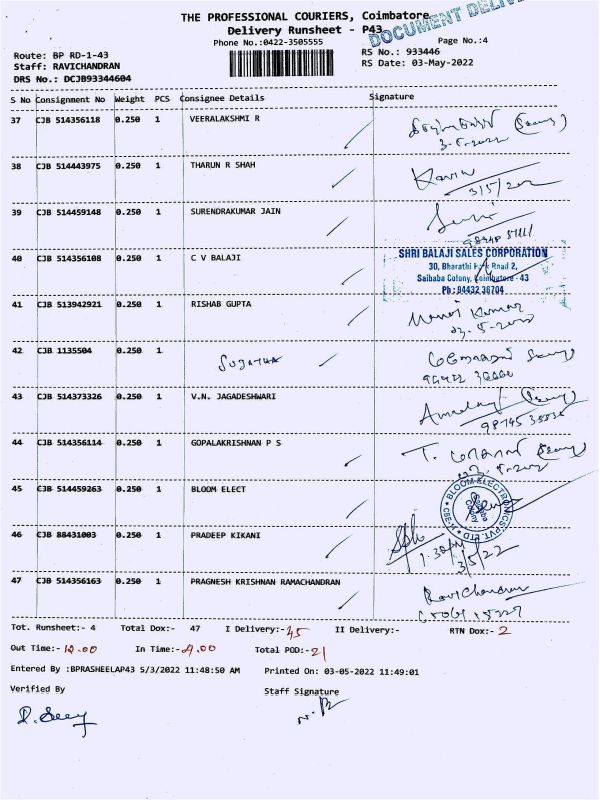 THE PROFESSIONAL COURIERS, Coimbatore
Delivery Runsheet - P43
DOCUMENT
Phone No.:0422-3505555
Page No.:4
Route: BP RD-1-43
RS No.: 933446
Staff: RAVICHANDRAN
RS Date: 03-May-2022
DRS No.: DCJB93344604
S No Consignment No Weight PCS Consignee Details Signature
37 CJB 514356118 0.250 1 VEERALAKSHMI R
3-5-2022
38 CJB 514443975 0.250 1 THARUN R SHAH
Kavin
3/5/202
39 CJB 514459148 0.250 1 SURENDRAKUMAR JAIN
40 CJB 514356108 0.250 1 C V BALAJI
SHRI BALAJI SALES CORPORATION
30, Bharathi Park Road 2,
Saibaba Colony, Coimbatore - 43
Ph : 94432 36704
41 CJB 513942921 0.250 1 RISHAB GUPTA
Kumar
42 CJB 1135504 0.250 1 SUGATHA
43 CJB 514373326 0.250 1 V.N. JAGADESHWARI
44 CJB 514356114 0.250 1 GOPALAKRISHNAN P S
45 CJB 514459263 0.250 1 BLOOM ELECT
BLOOM ELECTRONICS PVT LTD
Saibaba Colony
46 CJB 88431003 0.250 1 PRADEEP KIKANI
1.30
3/5/22
47 CJB 514356163 0.250 1 PRAGNESH KRISHNAN RAMACHANDRAN
Ravichandran
Tot. Runsheet:- 4 Total Dox:- 47 I Delivery:- 45 II Delivery:- RTN Dox:- 2
Out Time:- 12.00 In Time:- 4.00 Total POD:- 21
Entered By :BPRASHEELAP43 5/3/2022 11:48:50 AM Printed On: 03-05-2022 11:49:01
Verified By Staff Signature